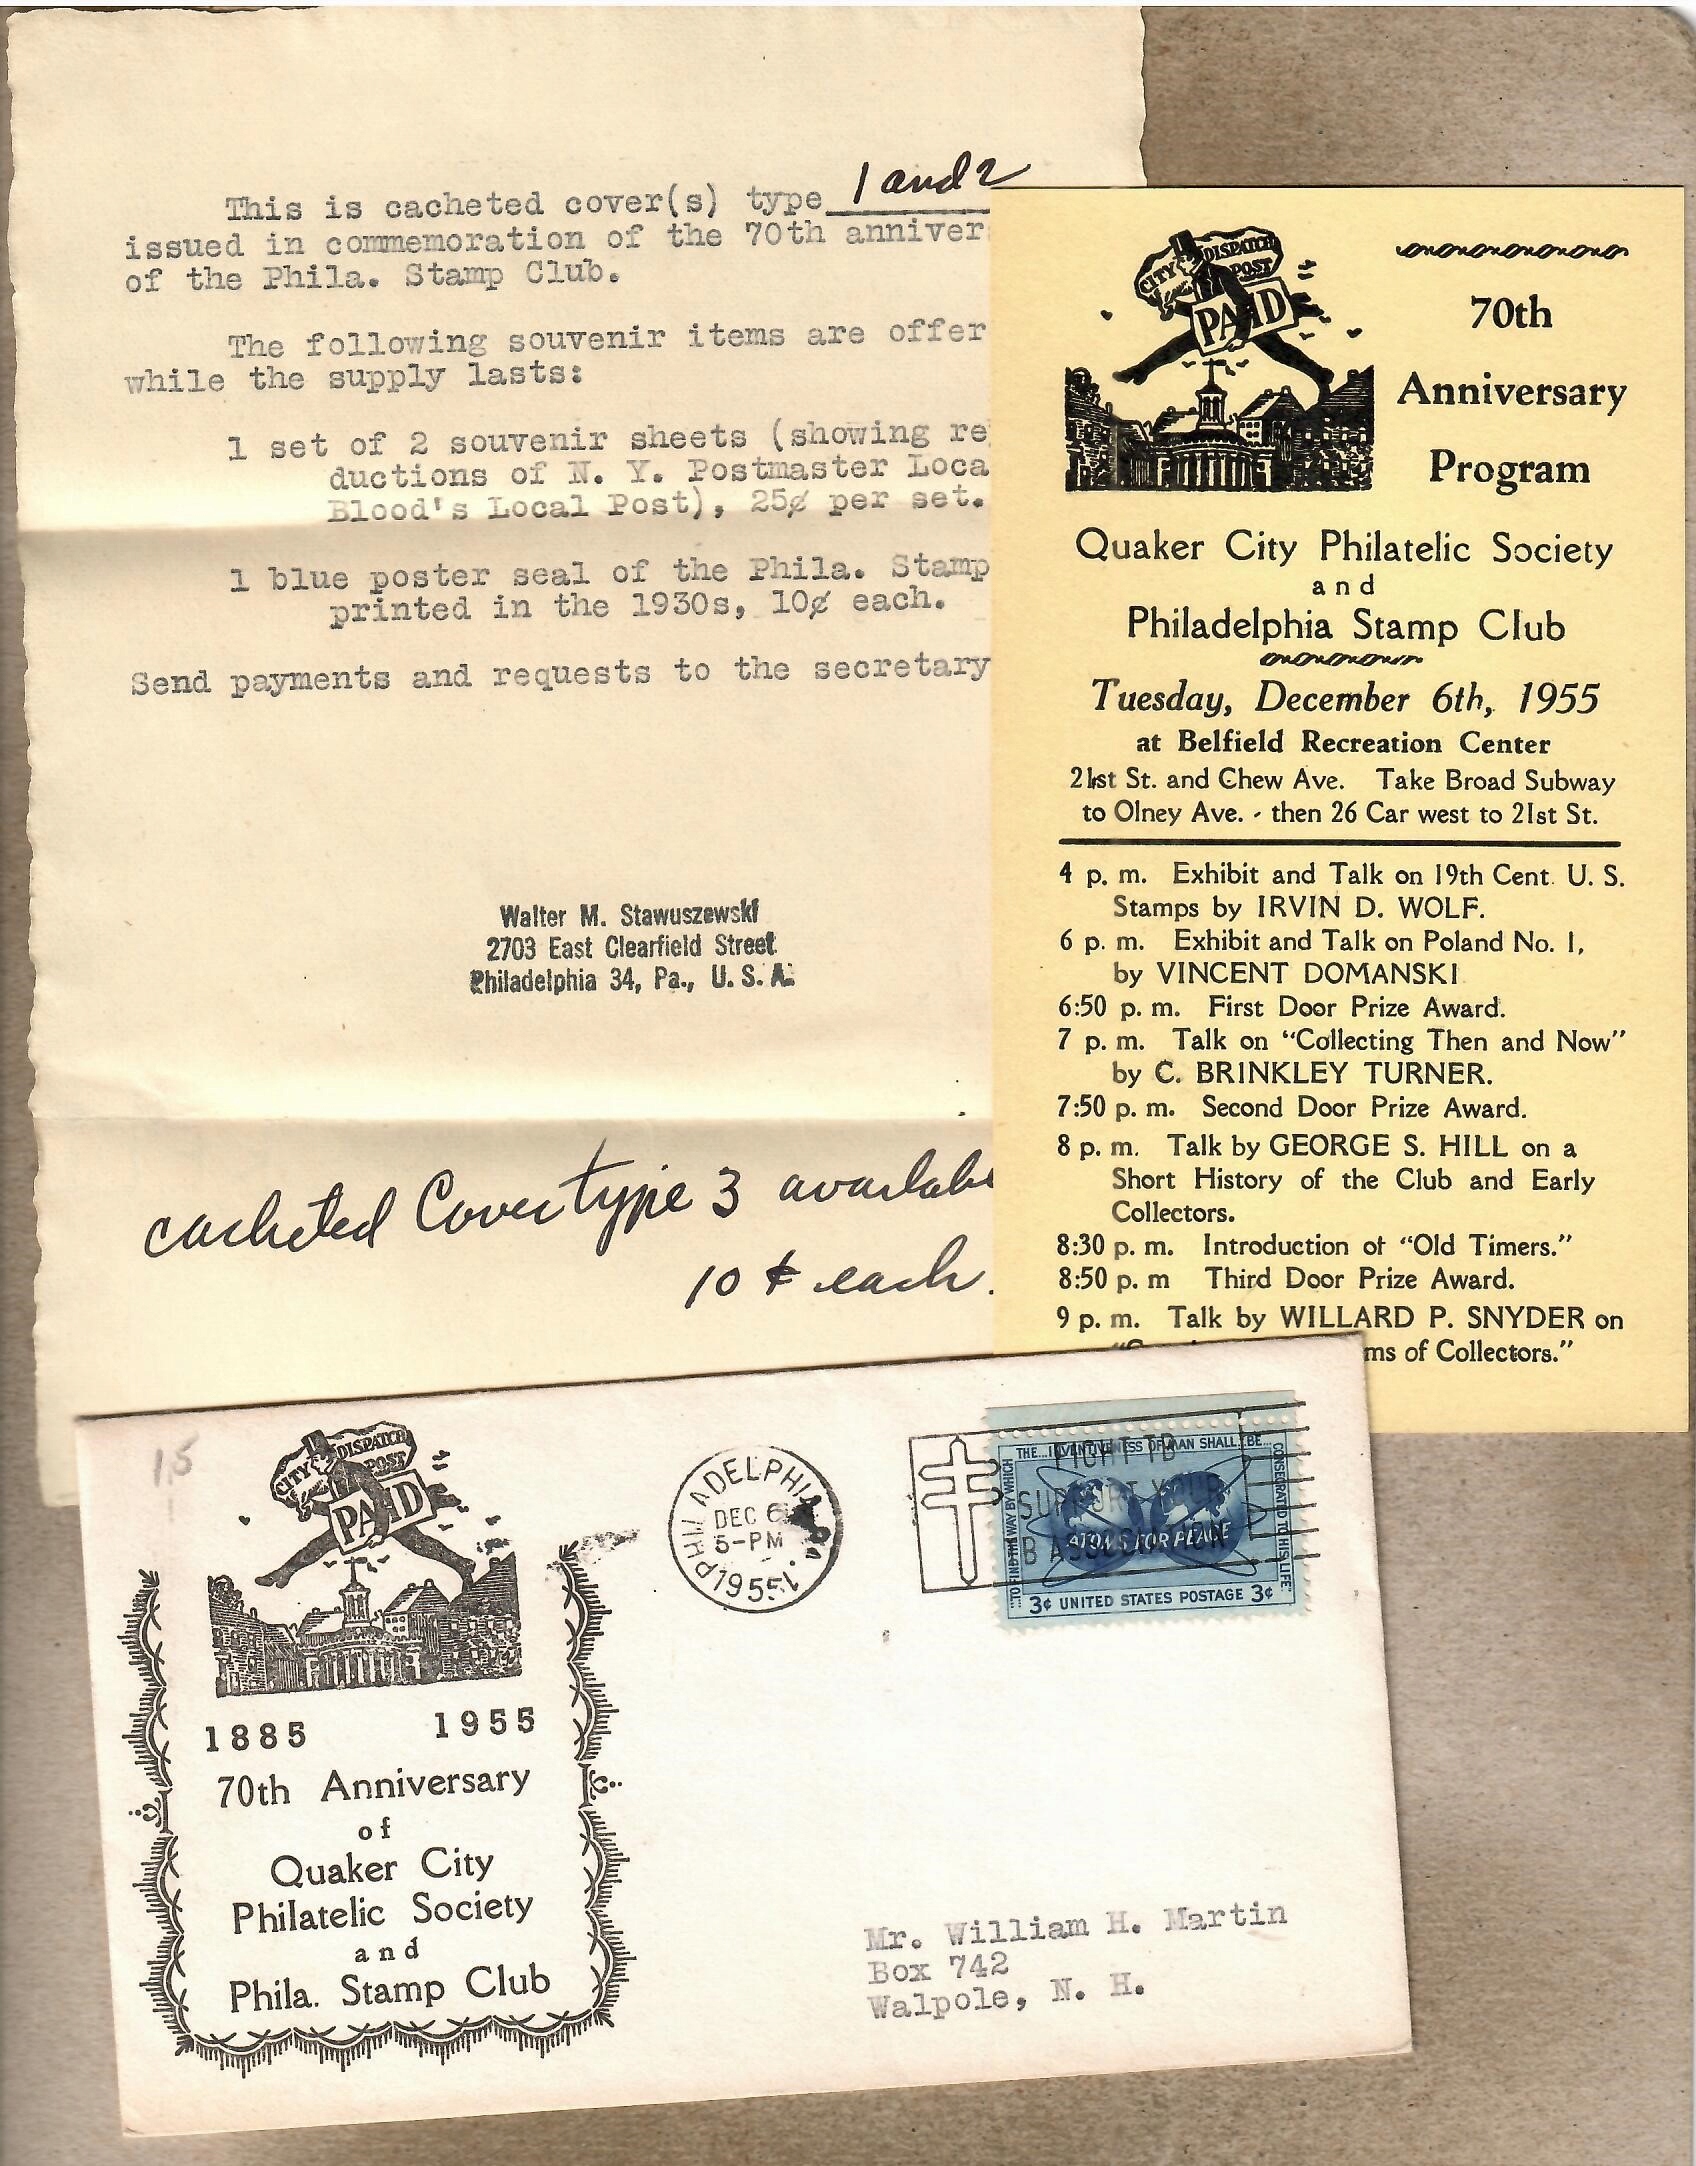 This is cacheted cover(s) type 1 and 2
issued in commemoration of the 70th anniver
of the Phila. Stamp Club.
The following souvenir items are offer
while the supply lasts:
1 set of 2 souvenir sheets (showing re
ductions of N. Y. Postmaster Loca
Blood's Local Post), 25¢ per set.
1 blue poster seal of the Phila. Stamp
printed in the 1930s, 10¢ each.
Send payments and requests to the secretary
Walter M. Stawuszewski
2703 East Clearfield Street
Philadelphia 34, Pa., U. S. A.
cacheted Cover type 3 availabl
10 ¢ each.
CITY DISPATCH
POST
PAID
70th
Anniversary
Program
Quaker City Philatelic Society
and
Philadelphia Stamp Club
Tuesday, December 6th, 1955
at Belfield Recreation Center
21st St. and Chew Ave. Take Broad Subway
to Olney Ave. - then 26 Car west to 21st St.
4 p. m. Exhibit and Talk on 19th Cent. U. S.
Stamps by IRVIN D. WOLF.
6 p. m. Exhibit and Talk on Poland No. 1,
by VINCENT DOMANSKI
6:50 p. m. First Door Prize Award.
7 p. m. Talk on "Collecting Then and Now"
by C. BRINKLEY TURNER.
7:50 p. m. Second Door Prize Award.
8 p. m. Talk by GEORGE S. HILL on a
Short History of the Club and Early
Collectors.
8:30 p. m. Introduction of "Old Timers."
8:50 p. m Third Door Prize Award.
9 p. m. Talk by WILLARD P. SNYDER on
ms of Collectors."
15
CITY DISPATCH
POST
PAID
1885 1955
70th Anniversary
of
Quaker City
Philatelic Society
and
Phila. Stamp Club
PHILADELPHIA
DEC 6
5-PM
1955
FIGHT TB
SUPPORT YOUR
TB ASSOCIATION
THE...INVENTIVENESS OF MAN SHALL BE...
CONSECRATED TO HIS LIFE.
...TO FIND THE WAY BY WHICH
ATOMS FOR PEACE
3¢ UNITED STATES POSTAGE 3¢
Mr. William H. Martin
Box 742
Walpole, N. H.